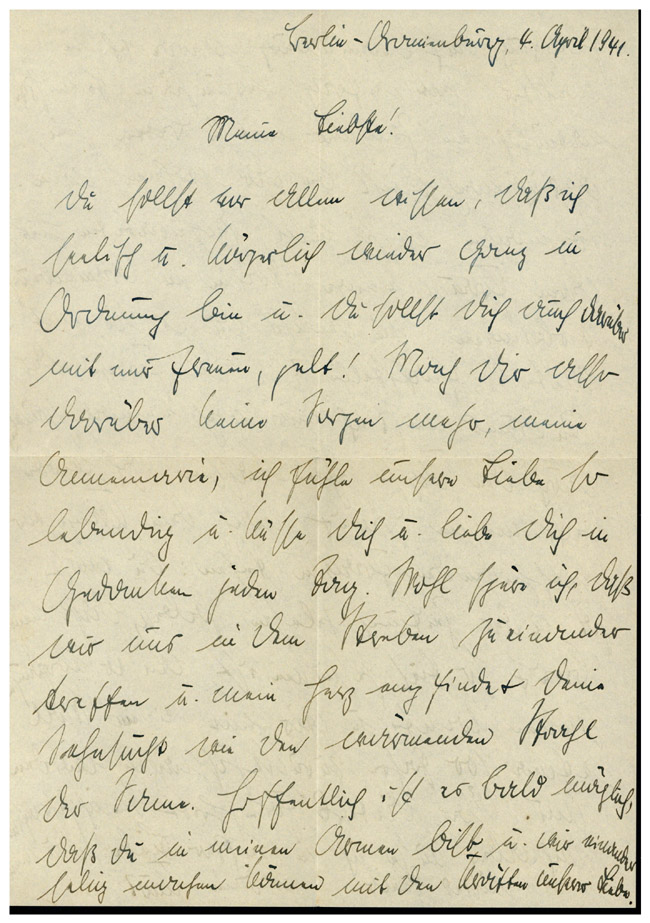 Berlin-Oranienburg, 4. April 1941.
Meine Liebste!
Du sollst vor Allem wissen, daß ich
seelisch u. körperlich wieder ganz in
Ordnung bin u. Du sollst Dich auch darüber
mit mir freuen, gelt! Mach Dir also
darüber keine Sorgen mehr, meine
Annemarie, ich fühle unsere Liebe so
lebendig u. küsse Dich u. liebe Dich in
Gedanken jeden Tag. Wohl spüre ich, daß
wir uns in dem Streben zueinander
treffen u. mein Herz empfindet Deine
Sehnsucht wie den wärmenden Strahl
der Sonne. Hoffentlich ist es bald möglich,
daß Du in meinen Armen bist u. wir einander
selig machen können mit den Kräften unserer Liebe.